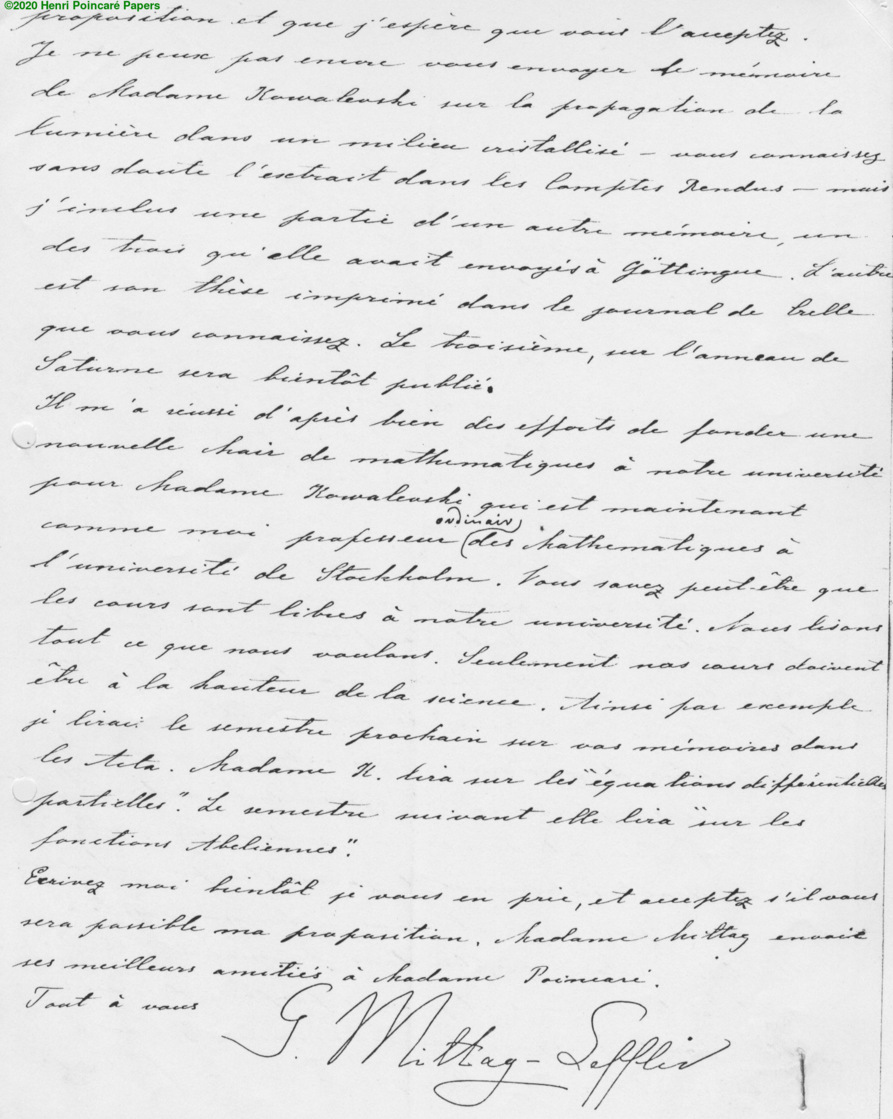 ©2020 Henri Poincaré Papers
proposition et que j'espère que vous l'acceptez.
Je ne peux pas encore vous envoyer le mémoire
de Madame Kowalevski sur la propagation de la
lumière dans un milieu cristallisé – vous connaissez
sans doute l'extrait dans les Comptes Rendus – mais
j'inclus une partie d'un autre mémoire, un
des trois qu'elle avait envoyés à Göttingue. L'autre
est son thèse imprimé dans le journal de Crelle
que vous connaissez. Le troisième, sur l'anneau de
Saturne sera bientôt publié.
Il m'a réussi d'après bien des efforts de fonder une
nouvelle chair de mathematiques à notre université
pour Madame Kowalevski qui est maintenant
ordinair
comme moi professeur des Mathematiques à
l'université de Stockholm. Vous savez peut-être que
les cours sont libres à notre université. Nous lisons
tout ce que nous voulons. Seulement nos cours doivent
être à la hauteur de la science. Ainsi par exemple
je lirai le semestre prochain sur vos mémoires dans
les Acta. Madame K. lira sur les "équations différentielles
partielles". Le semestre suivant elle lira "sur les
fonctions Abeliennes".
Ecrivez moi bientôt je vous en prie, et acceptez s'il vous
sera possible ma proposition. Madame Mittag envoie
ses meilleurs amitiés à Madame Poincaré.
Tout à vous
G. Mittag-Leffler